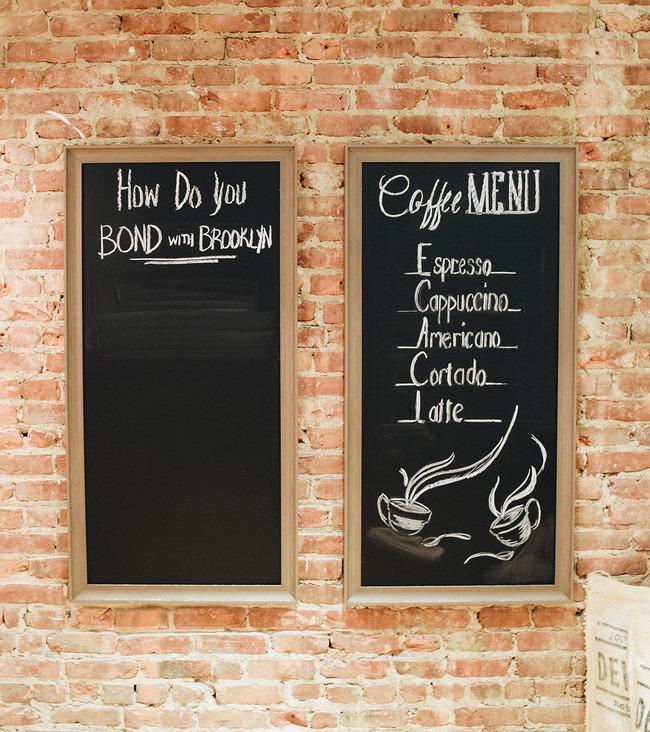 How Do You
BOND WITH BROOKLYN
Coffee MENU
Espresso
Cappuccino
Americano
Cortado
Latte
100
DEV